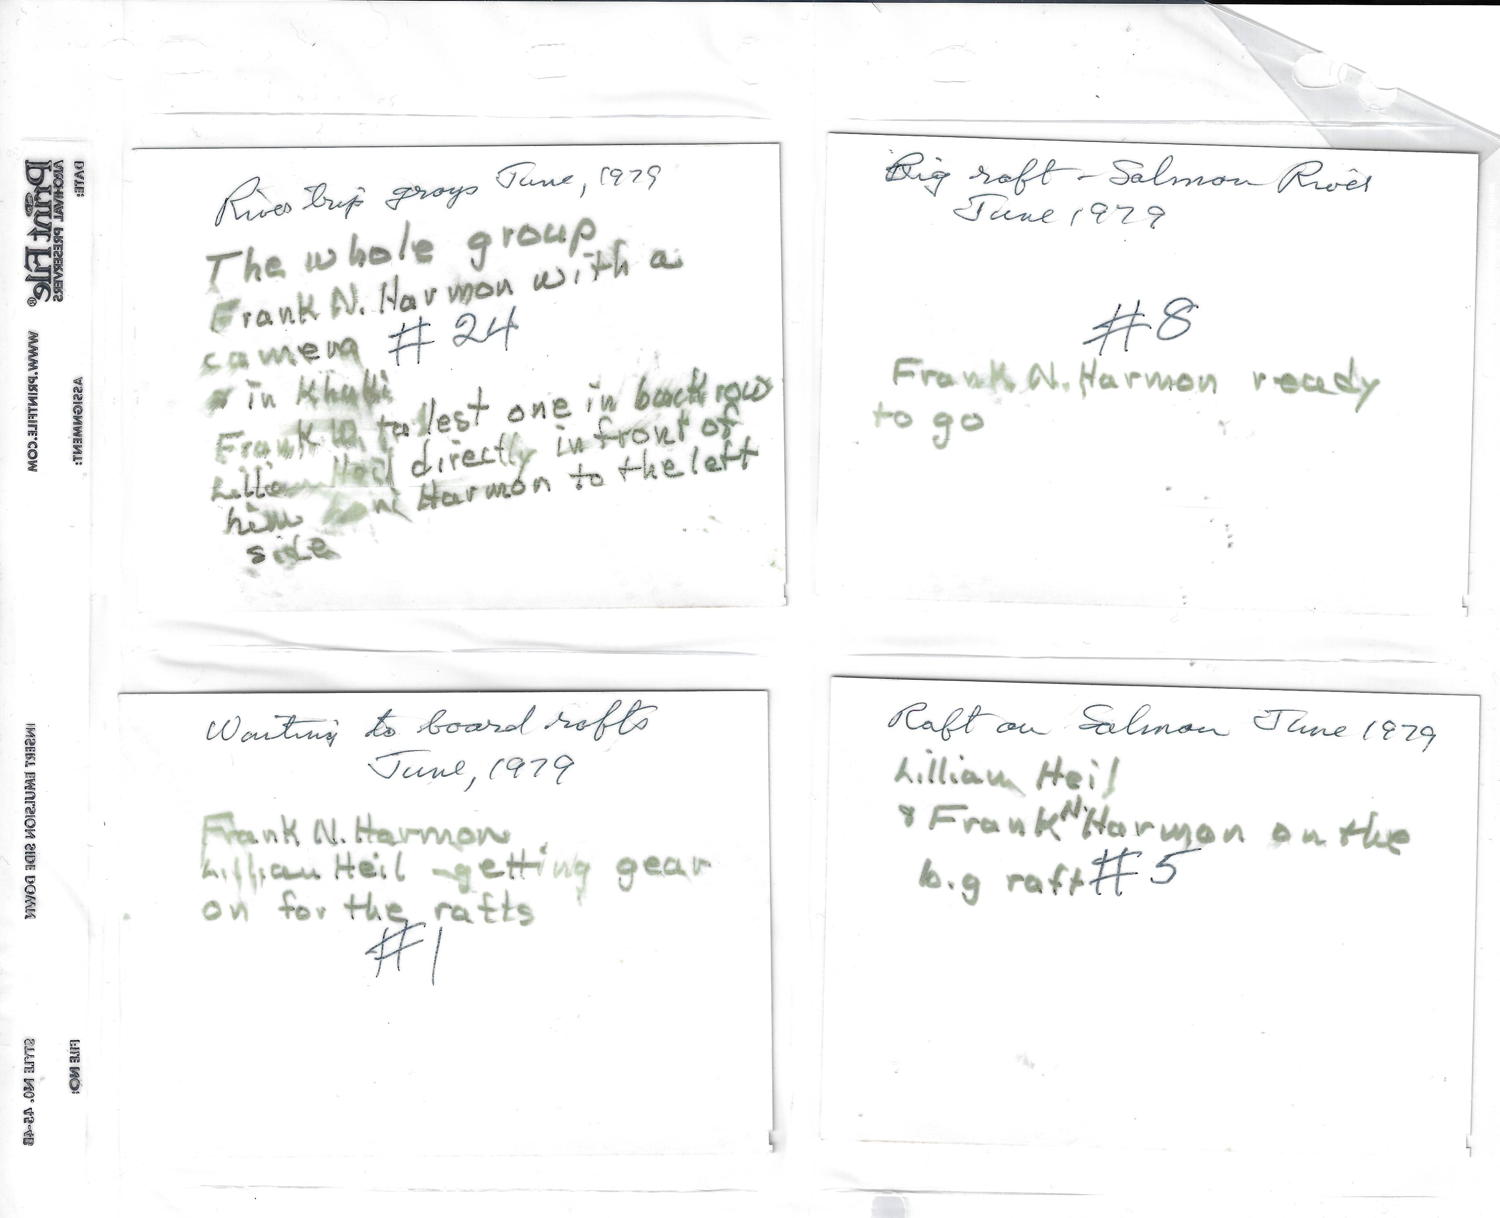 River trip group June, 1979
The whole group
Frank N. Harmon with a
camera #24
& in Khaki
Frank N. tallest one in back row
Lillian Heil directly in front of
him Harmon to the left
side
Big raft - Salmon River
June 1979
#8
Frank N. Harmon ready
to go
Waiting to board rafts
June, 1979
Frank N. Harmon
Lillian Heil - getting gear
on for the rafts
#1
Raft on Salmon June 1979
Lilliam Heil
& Frank N. Harmon on the
big raft #5
DATE:
ARCHIVAL PRESERVERS
Print File®
WWW.PRINTFILE.COM
ASSIGNMENT:
INSERT EMULSION SIDE DOWN
FILE NO:
STYLE NO. 45-4B